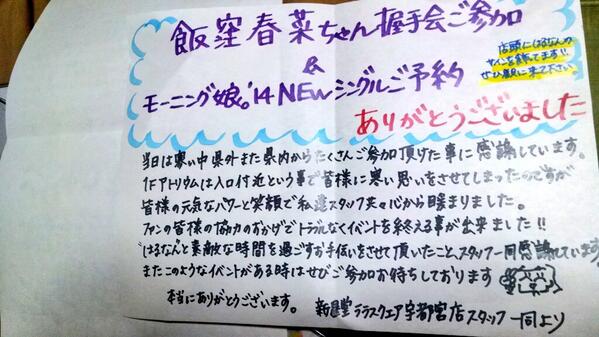 飯窪春菜ちゃん握手会ご参加
&
モーニング娘。'14 NEWシングルご予約
ありがとうございました
店頭にはるなんの
サインを飾ってます!!
ぜひ観に来て下さい
当日は寒い中県外また県内からたくさんご参加頂けた事に感謝しています。
1Fアトリウムは入口付近という事で皆様に寒い思いをさせてしまったのですが
皆様の元気なパワーと笑顔で私達スタッフ共々心から暖まりました。
ファンの皆様の協力のおかげでトラブルなくイベントを終える事が出来ました!!
"はるなん"と素敵な時間を過ごすお手伝いをさせて頂いたこと、スタッフ一同感謝しています。
またこのようなイベントがある時はぜひご参加お待ちしております
本当にありがとうございます。
新星堂テラスクエア宇都宮店スタッフ一同より